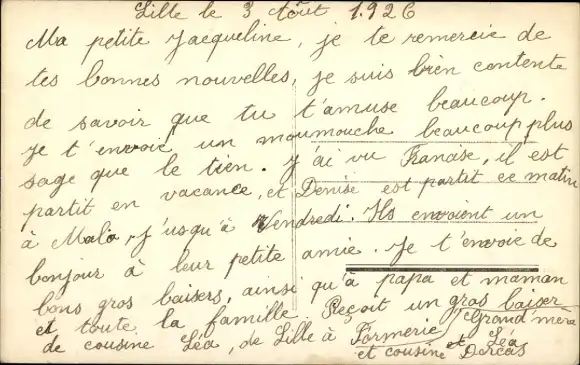 Lille le 3 Août 1926
Ma petite Jacqueline, je te remercie de
tes bonnes nouvelles, je suis bien contente
de savoir que tu t'amuse beaucoup.
Je t'envoie un moumouche beaucoup plus
sage que le tien. J'ai vu Francise, il est
partit en vacance, et Denise est partit ce matin
à Malo, j'usqu'à Vendredi. Ils envoient un
bonjour à leur petite amie. Je t'envoie de
bons gros baisers, ainsi qu'à papa et maman
et toute la famille. Reçoit un gros baiser
de cousine Léa, de Lille à Formerie
Grand'mère
et Léa
et cousine Dercas